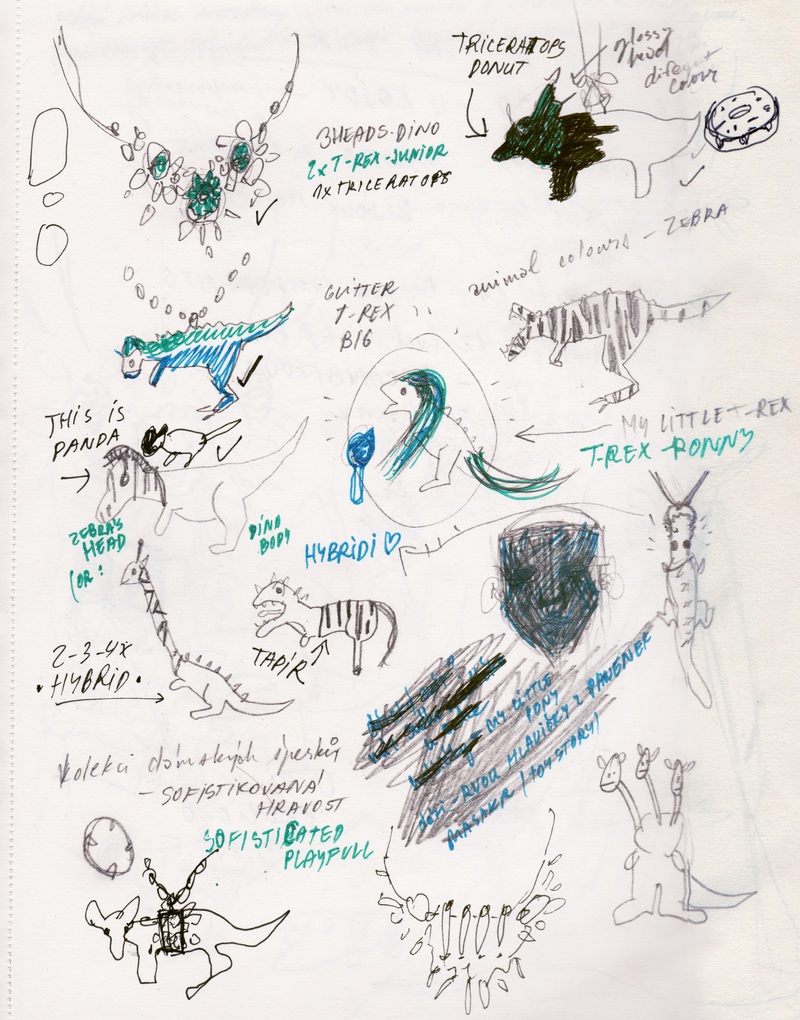 TRICERATOPS
DONUT
glossy
head
different
colour
3HEADS-DINO
2x T-REX-JUNIOR
1x TRICERATOPS
animal colours - ZEBRA
GLITTER
T-REX
BIG
THIS IS
PANDA
MY LITTLE T-REX
T-REX RONNY
ZEBRA'S
HEAD
(OR:
DINO
BODY
HYBRIDI ♡
2-3-4x
HYBRID.
TAPÍR
MY LITTLE
PONY
děti - RVOU HLAVIČKY Z PANENEK
MASAKR (TOY STORY)
kolekci dámských šperků
- SOFISTIKOVANÁ
HRAVOST
SOFISTICATED
PLAYFULL